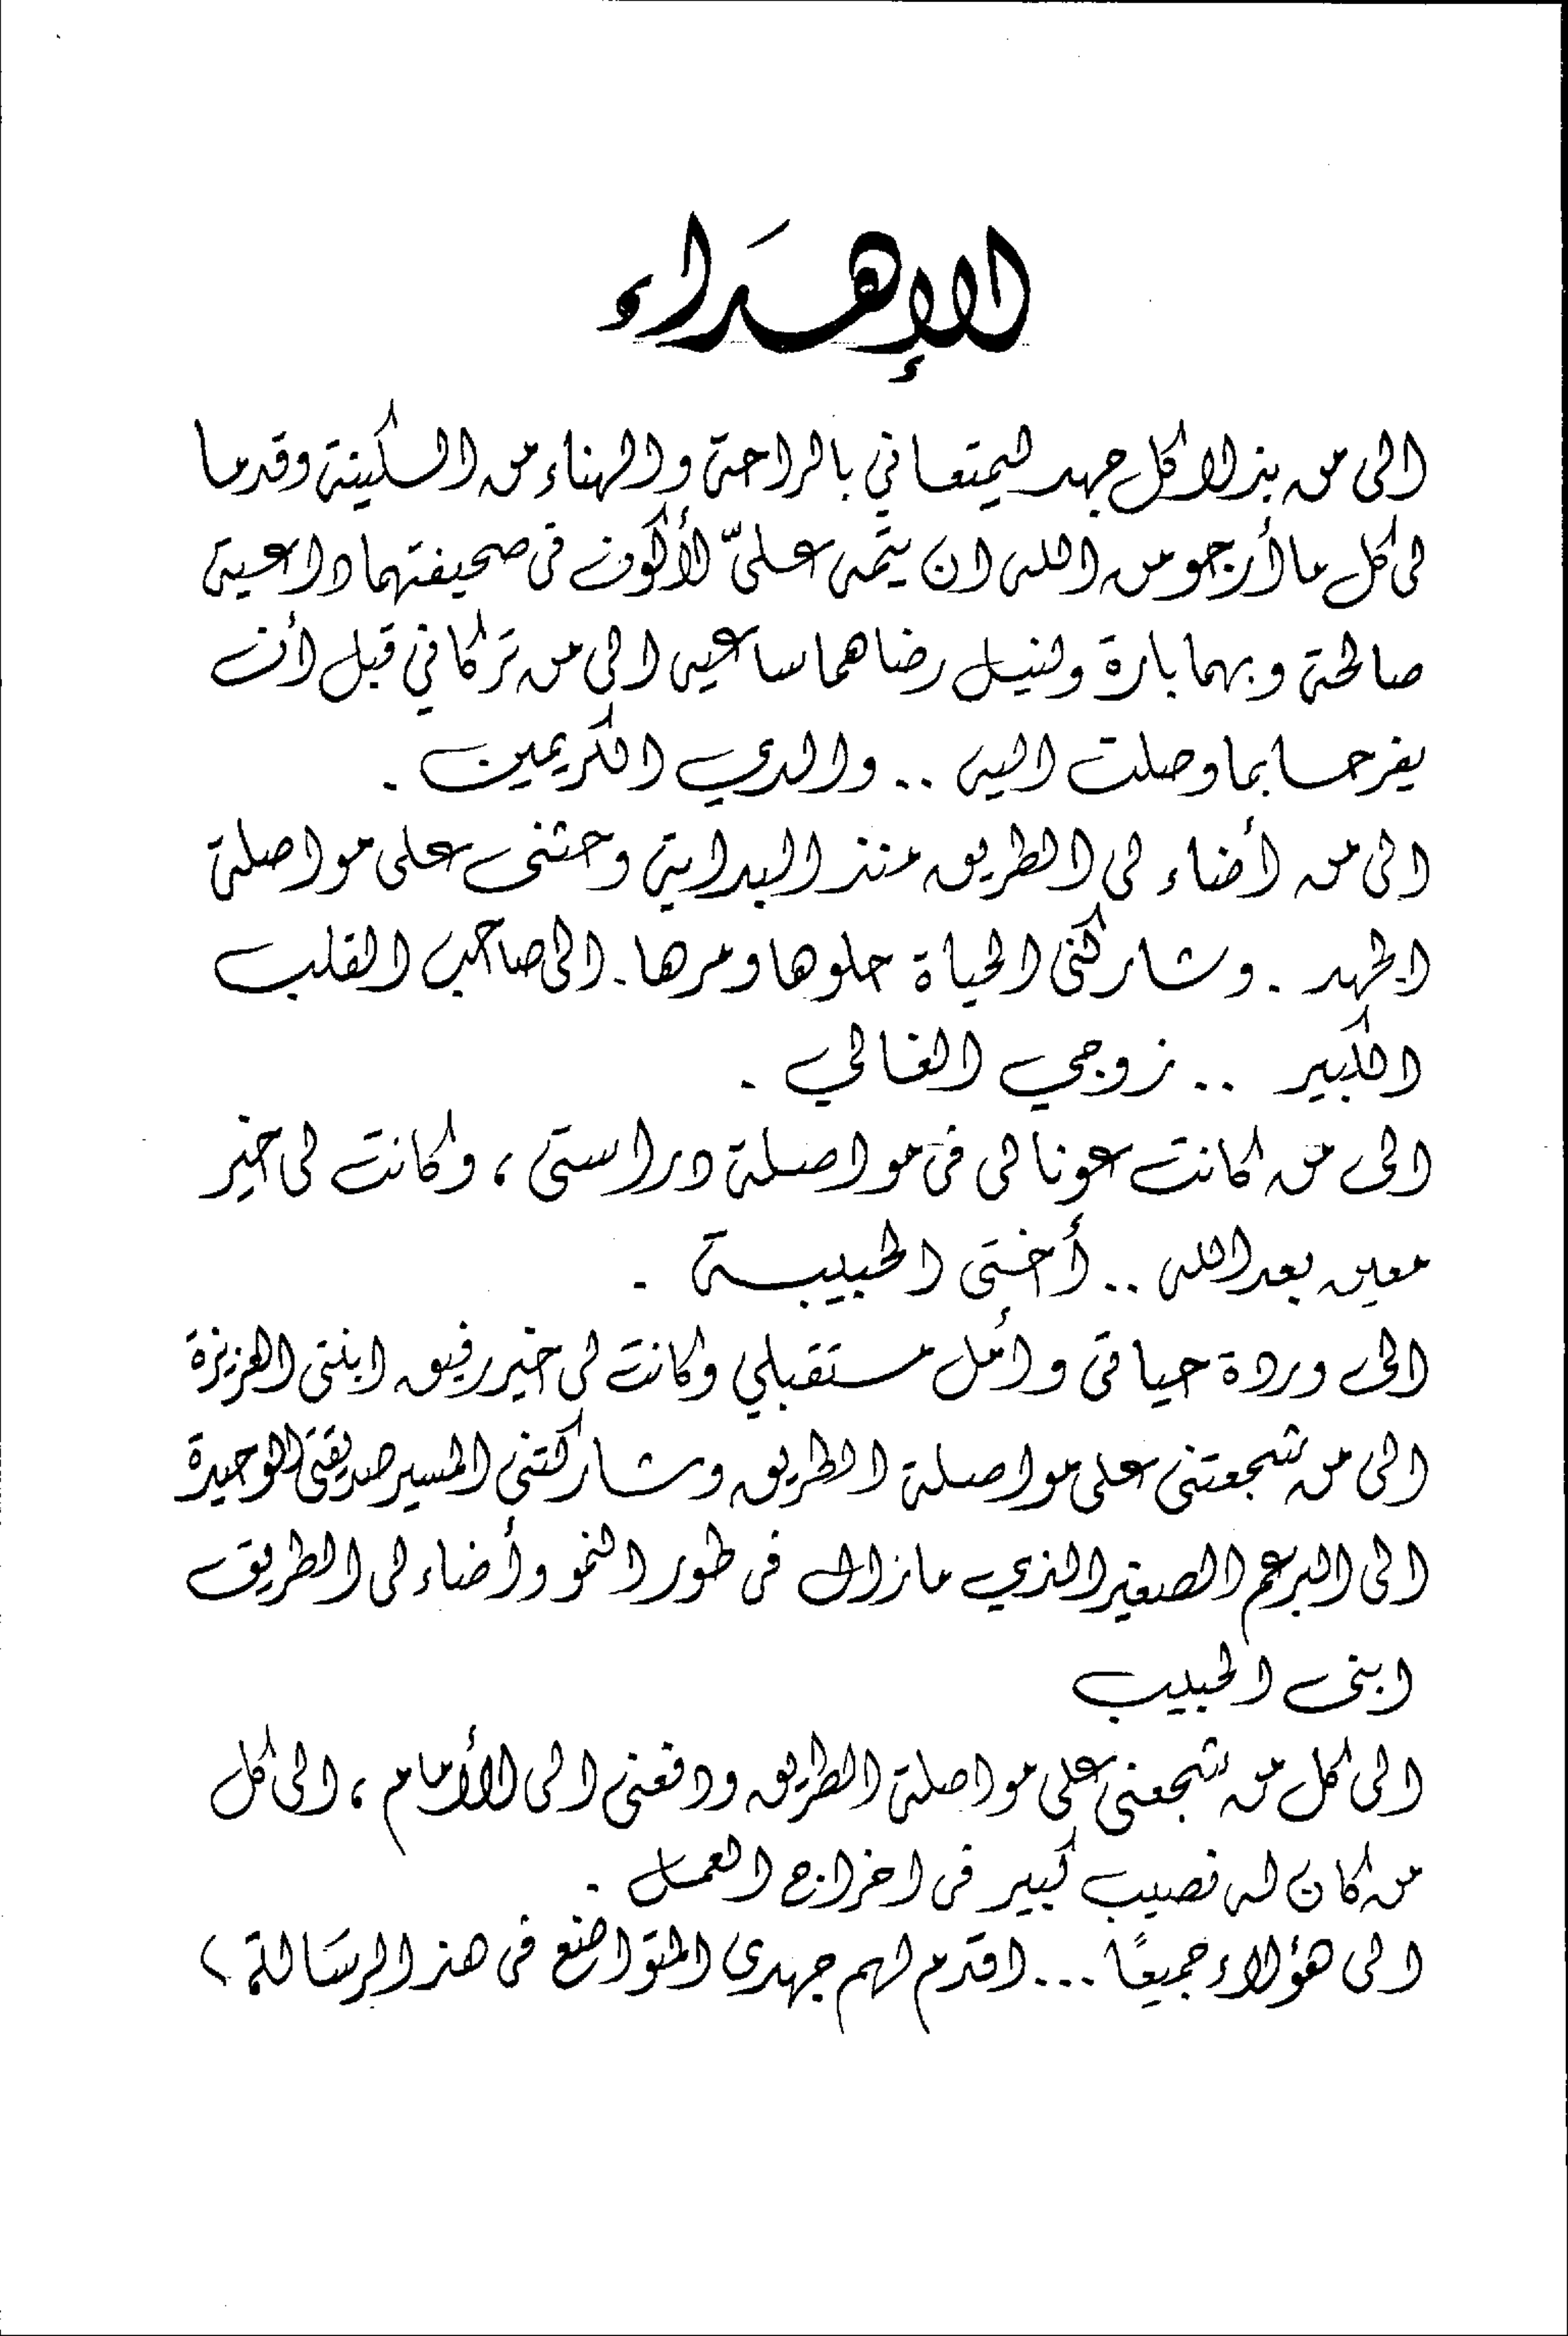 الإهداء
الى من بذلا كل جهد ليمتعاني بالراحة والهناء من السكينة وقدما
لى كل ما أرجو من الله ان يتمه علىّ لأكون فى صحيفتهما داعية
صالحة وبهما بارة ولنيل رضاهما ساعيه الى من تركاني قبل أن
يفرحا بما وصلت اليه .. والدي الكريمين .
الى من أضاء لى الطريق منذ البداية وحثنى على مواصلة
الجهد . وشاركنى الحياة حلوها ومرها . الى صاحب القلب
الكبير .. زوجي الغالي .
الى من كانت عونا لى فى مواصلة دراستى ، وكانت لى خير
معين بعد الله .. أختى الحبيبة .
الى وردة حياتى وأمل مستقبلي وكانت لى خير رفيق ابنتى العزيزة
الى من شجعتنى على مواصلة الطريق وشاركتنى المسير صديقتى الوحيدة
الى البرعم الصغير الذي مازال فى طور النمو وأضاء لى الطريق
ابنى الحبيب
الى كل من شجعنى على مواصلة الطريق ودفعنى الى الأمام ، الى كل
من كان له نصيب كبير فى اخراج العمل .
الى هؤلاء جميعًا ... اقدم لهم جهدى المتواضع فى هذا الرسَالة ،